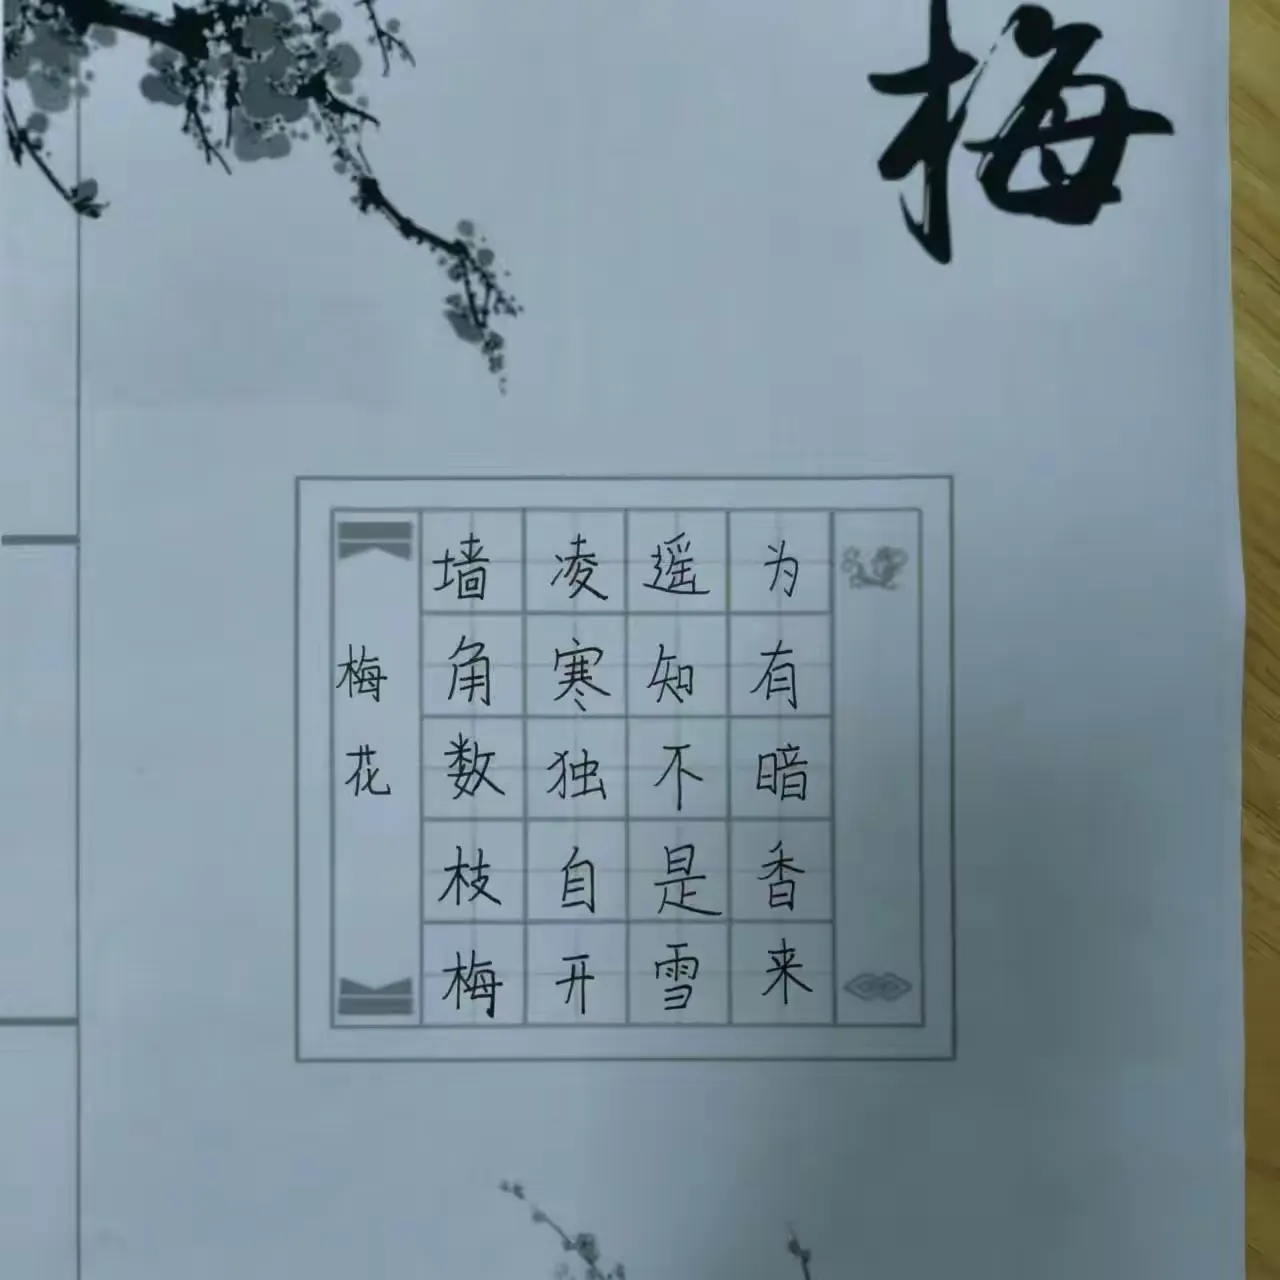 梅
梅花
墙角数枝梅
凌寒独自开
遥知不是雪
为有暗香来